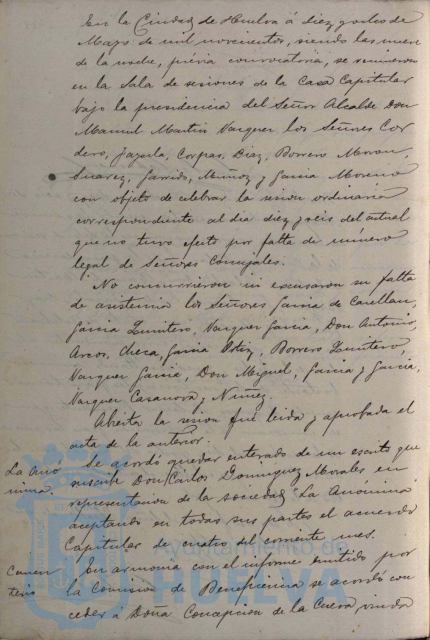 En la Ciudad de Huelva á diez y ocho de
Mayo de mil novecientos, siendo las nueve
de la noche, prévia convocatoria, se reunieron
en la Sala de sesiones de la Casa Capitular
bajo la presidencia del Señor Alcalde Don
Manuel Martin Vazquez los Señores Cor
dero, Jazula, Corpas, Diaz, Borrero Moron,
Suarez, Garrido, Muñoz y Garcia Moreno
con objeto de celebrar la sesion ordinaria
correspondiente al dia diez y seis del actual
que no tuvo efecto por falta de número
legal de Señores Concejales.
No concurrieron ni excusaron su falta
de asistencia los Señores Garcia de
Garcia Quintero, Vazquez Garcia, Don Antonio,
Arcos, Checa, Garcia Ortiz, Borrero Quintero,
Vazquez Garcia, Don Miguel, Garcia y Garcia,
Vazquez Casanova y Nuñez.
Abierta la sesion fué leida y aprobada el
acta de la anterior.
La Anó
nima.
Se acordó quedar enterado de un escrito que
suscribe Don Carlos Dominguez Morales en
representacion de la sociedad "La Anonima"
aceptando en todas sus partes el acuerdo
Capitular de cuatro del corriente mes.
Cemen
terio
En armonia con el informe emitido por
la Comision de Beneficencia se acordó con
ceder á Doña Concepcion de la Cueva, viuda
Ayuntamiento de
HUELVA